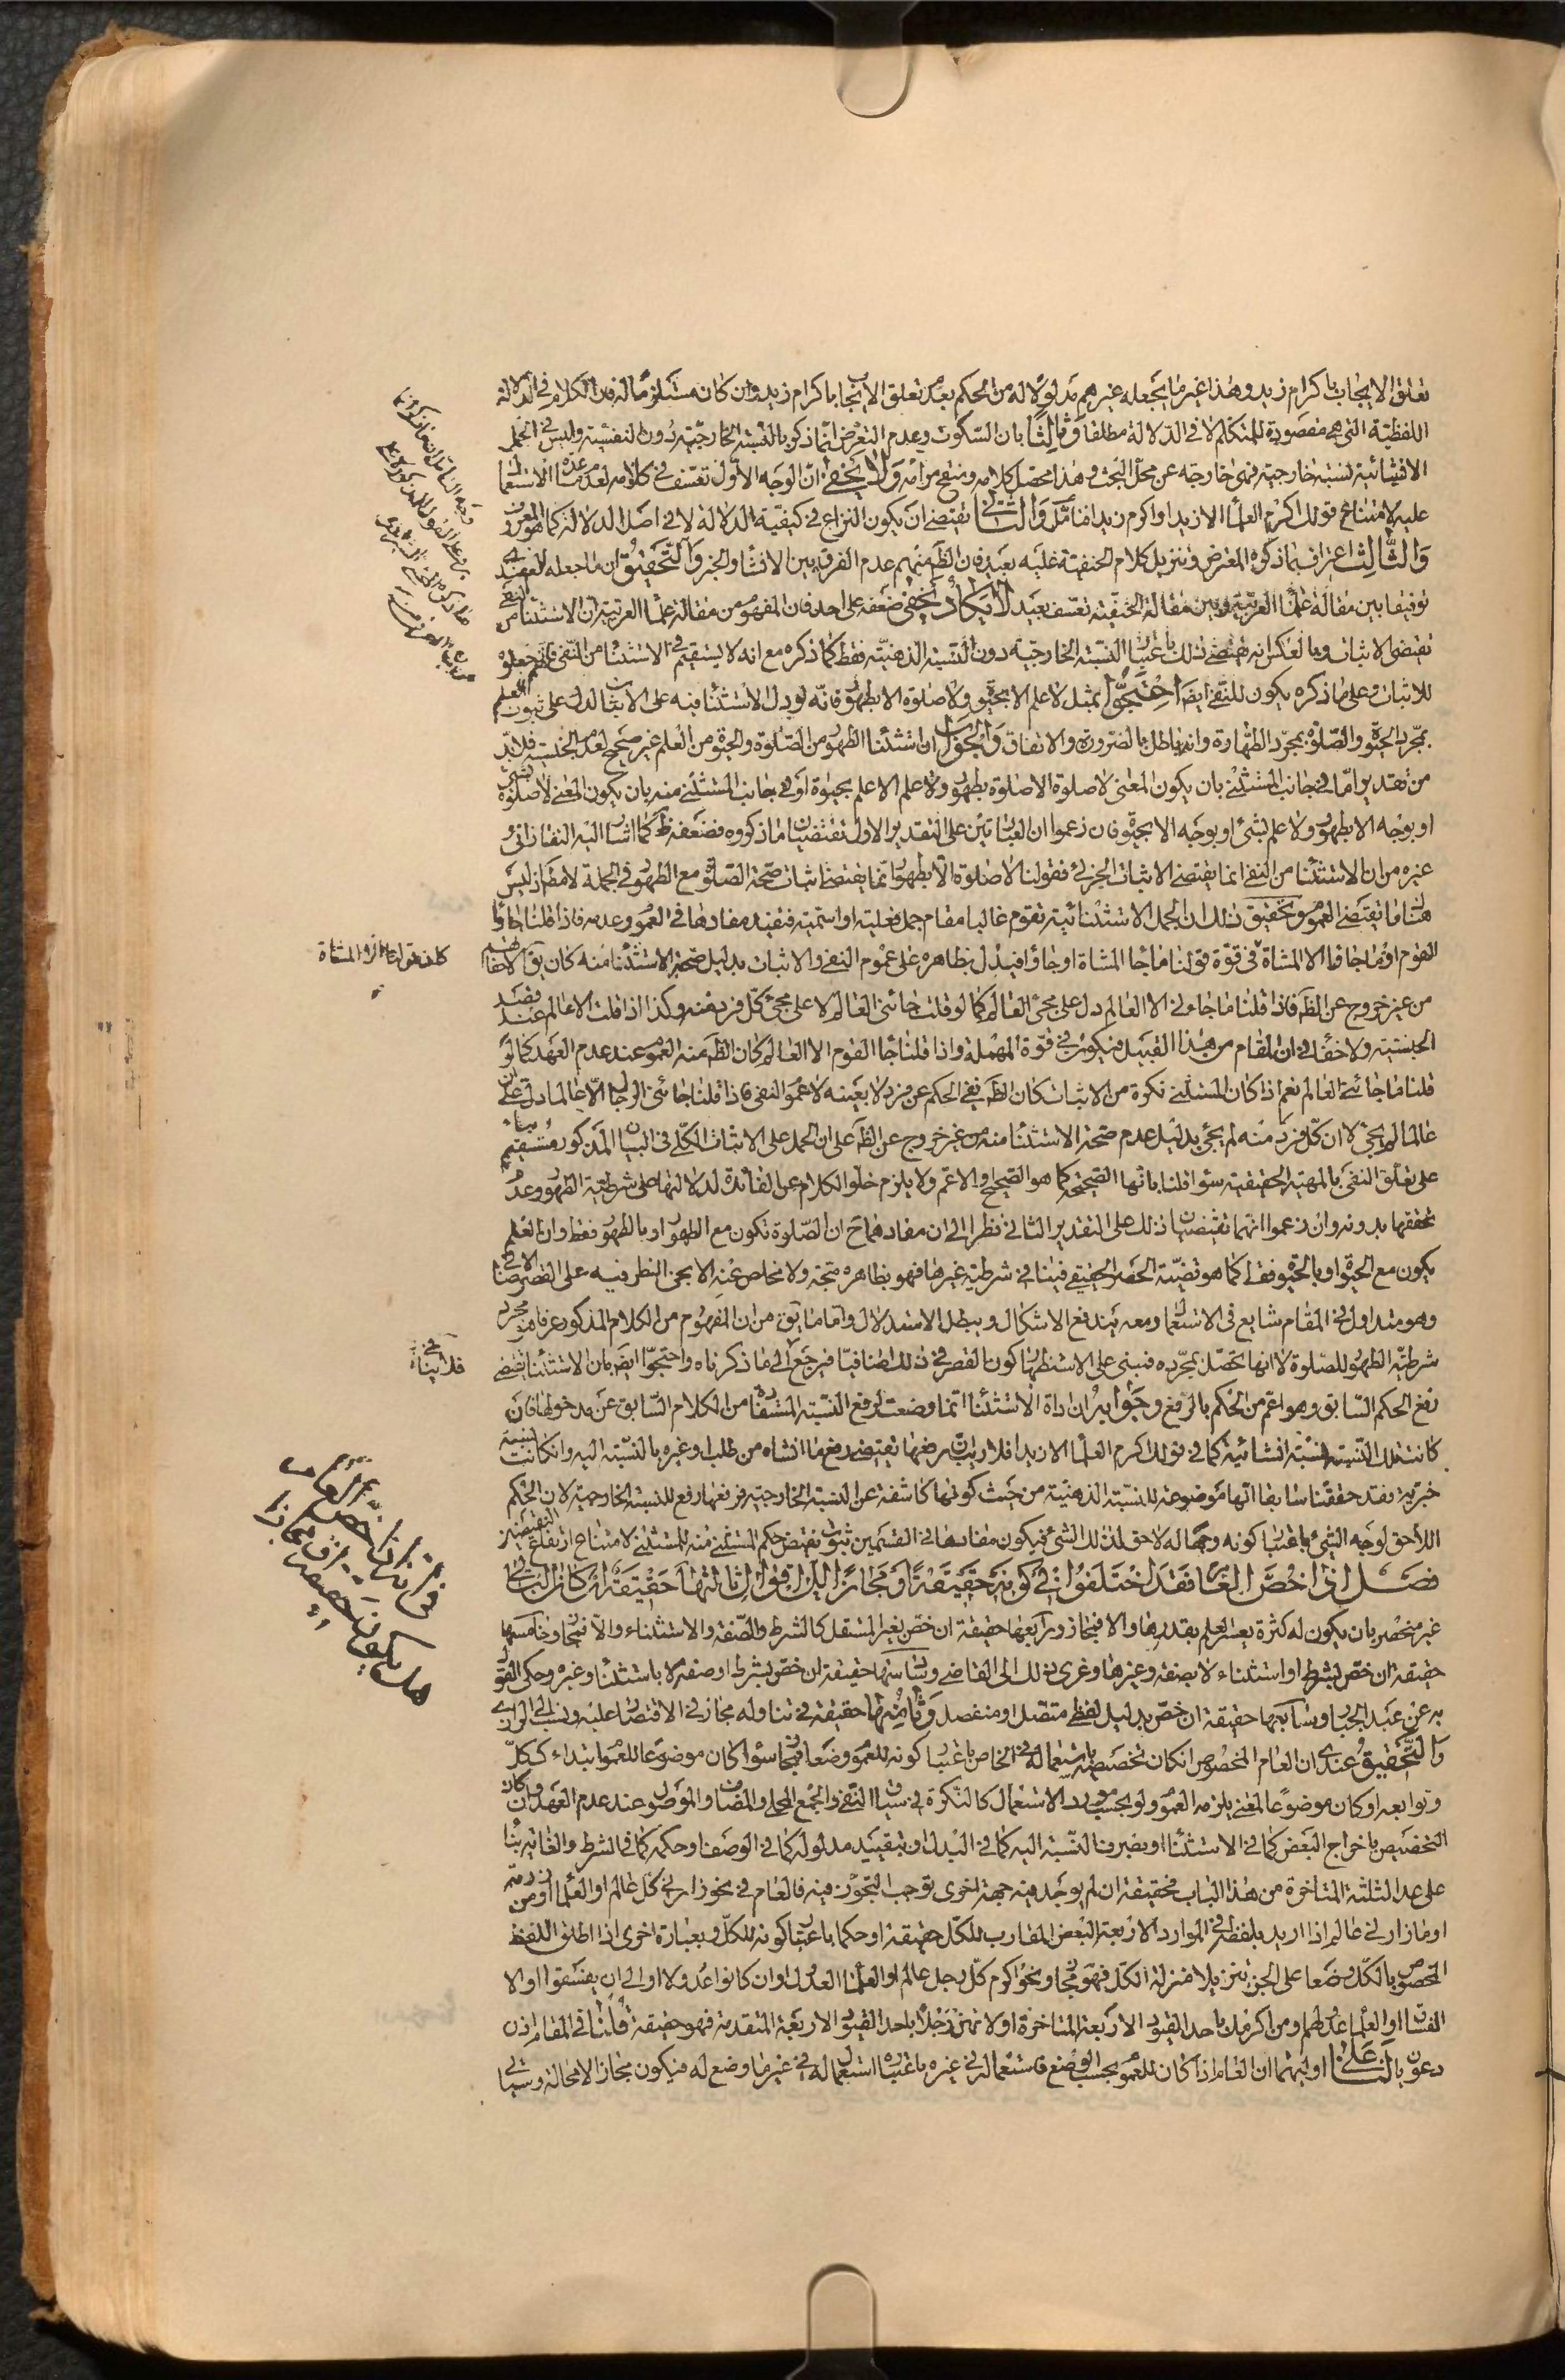 تعلق الايجاب باكرام زيد وهذا غير ما يجعله غيرهم مدلولا له من الحكم بعدم تعلق الايجاب باكرام زيد وان كان مستلزما له فان الكلام في الدلالة
اللفظية التي هي مقصودة للمتكلم لا في الدلالة مطلقا وثالثا بان السكوت وعدم التعرض انما ذكر بالنسبة الخارجية دون النفسية وليس في الجمل
الانشائية نسبة خارجية فهي خارجة عن محل البحث وهذا محصل كلامه ومنقح مرامه ولا يخفى ان الوجه الاول تعسف في كلامه لعدم مساعدة الاستعمال
عليه لامتناع قولك اكرم العلماء الا زيدا واكرم زيدا فتامل والثاني يقتضي ان يكون النزاع في كيفية الدلالة لا في اصل الدلالة كما هو المعروف
والثالث اعتراف بما ذكره المعترض وتنزيل كلام الحنفية عليه بعيد فان الظ منهم عدم الفرق بين الانشاء والخبر والتحقيق ان ما جعله العضدي
توفيقا بين مقالة علماء العربية وبين مقالة الحنفية تعسف بعيد لا يكاد يخفى ضعفه على احد فان المفهوم من مقالة علماء العربية ان الاستثناء من النفي
يقتضي الاثبات وبالعكس انه يقتضي ذلك باعتبار النسبة الخارجية دون النسبة الذهنية فقط كما ذكره مع انه لا يستقيم في الاستثناء من النفي فانهم جعلوه
للاثبات وعلى ما ذكره يكون للنفي ايضا احتجوا بمثل لا علم الا بحيوة ولا صلوة الا بطهور فانه لو دل الاستثناء فيه على الاثبات لدل على ثبوت العلم
بمجرد الحيوة والصلوة بمجرد الطهارة وانه باطل بالضرورة والاتفاق والجواب ان استثناء الطهور من الصلوة والحيوة من العلم غير صحيح لعدم الجنسية فلا بد
من تقدير اما في جانب المستثنى بان يكون المعنى لا صلوة الا صلوة بطهور ولا علم الا علم بحيوة او في جانب المستثنى منه بان يكون المعنى لا صلوة بشئ
او بوجه الا بطهور ولا علم بشئ او بوجه الا بحيوة فان زعموا ان العبارتين على التقدير الاول تقتضيان ما ذكروه فضعفه ظ كما اشار اليه التفتازاني و
غيره من ان الاستثناء من النفي انما يقتضي الاثبات الجزئي فقولنا لا صلوة الا بطهور انما يقتضي اثبات صحة الصلوة مع الطهور في الجملة لا مط اذ ليس
هنا ما يقتضي العموم وتحقيق ذلك ان الجمل الاستثنائية تقوم غالبا مقام جمل فعلية او اسمية فتفيد مفادها في العموم وعدمه فاذا قلنا ما جاؤا
القوم او ما جاؤا الا المشاة في قوة قولنا ما جاء المشاة او جاؤا فيدل بظاهره على عموم النفي والاثبات بدليل صحة الاستثناء منه كان يق الا فلانا منهم
من غير خروج عن الظ فاذا قلنا ما جاءني الا العالم دل على مجئ العالم كما لو قلت جائني العالم لا على مجئ كل فرد منه وكذا اذا قلت الا عالم عند قصد
الجنسية ولا خفاء في ان المقام من هذا القبيل فيكون في قوة المهملة واذا قلنا جاء القوم الا العالم كان الظ منه العموم عند عدم العهد كما لو
قلنا ما جائني العالم نعم اذا كان المستثنى نكرة من الاثبات كان الظ نفي الحكم عن فرد لا بعينه لا عموم النفي فاذا قلنا جائني الرجال الا عالما دل على ان
عالما لم يجئ لا ان كل فرد منه لم يجئ بدليل عدم صحة الاستثناء منه من غير خروج عن الظ على ان الحمل على الاثبات الكلي في البيان المذكور مستقيم بناء
على تعلق النفي بالمهية الحقيقية سواء قلنا بانها الصحيحة كما هو الصحيح او الاعم ولا يلزم خلو الكلام عن الفائدة لدلالتها على شرطية الطهور وعدم
تحققها بدونه وان زعموا انهما تقتضيان ذلك على التقدير الثاني نظرا الى ان مفادهما ح ان الصلوة تكون مع الطهور او بالطهور فقط وان العلم
يكون مع الحيوة او بالحيوة فقط كما هو قضية الحصر الحقيقي فينافي شرطية غيرها فهو بظاهره متجه ولا مخلص عنه الا بحمل النظر فيه على القصر الاضافي
وهو متداول في المقام شايع في الاستعمال ومعه يندفع الاشكال ويبطل الاستدلال واما ما يق من ان المفهوم من الكلام المذكور عرفا هو مجرد
شرطية الطهور للصلوة لا انها تحصل بمجرده فمبني على الاستظهار كون القصر في ذلك اضافيا فيرجع الى ما ذكرناه واحتجوا ايض بان الاستثناء يقتضي
رفع الحكم السابق وهو اعم من الحكم بالرفع وجوابه ان اداة الاستثناء انما وضعت لرفع النسبة المستفادة من الكلام السابق عن مدخولها فان
كانت تلك النسبة نسبة انشائية كما في قولك اكرم العلماء الا زيدا فلا ريب ان رفعها يقتضي رفع ما انشاه من طلب او غيره بالنسبة اليه وان كانت نسبة
خبرية فقد حققنا سابقا انها موضوعة للنسبة الذهنية من حيث كونها كاشفة عن النسبة الخارجية فرفعها رفع للنسبة الخارجية لان الحكم
اللاحق لوجه الشئ باعتبار كونه وجها له لاحق لذلك الشئ فيكون مفادها في القسمين ثبوت نقيض حكم المستثنى منه للمستثنى لامتناع ارتفاع النقيضين
فصل اذا خص العام فقد اختلفوا في كونه حقيقة او مجازا الى اقوال ثالثها حقيقة ان كان الباقي
غير منحصر بان يكون له كثرة يعسر العلم بقدرها والا فمجاز ورابعها حقيقة ان خص بغير المستقل كالشرط والصفة والاستثناء والا فمجاز وخامسها
حقيقة ان خص بشرط او استثناء لا بصفة وغيرها وعزى ذلك الى القاضي وسادسها حقيقة ان خص بشرط او صفة لا باستثناء وغيره وحكى القول
به عن عبد الجبار وسابعها حقيقة ان خص بدليل لفظي متصل او منفصل وثامنها حقيقة في تناوله مجاز في الاقتصار عليه ونسب الى الرازي
والتحقيق عندي ان العام المخصوص ان كان تخصيصه باستعماله في الخاص باعتبار كونه للعموم وضعا فمجاز سواء كان موضوعا للعموم ابتداء ككل
وتوابعه او كان موضوعا لمعنى يلزمه العموم ولو بحسب موارد الاستعمال كالنكرة في سياق النفي والجمع المحلى والمضاف والموصول عند عدم العهد وان كان
التخصيص باخراج البعض كما في الاستثناء او بصرف النسبة اليه كما في البدل او بتقييد مدلوله كما في الوصف او حكمه كما في الشرط والغاية بناء
على عد الثلثة المتاخرة من هذا الباب فحقيقة ان لم يوجد فيه جهة اخرى توجب التجوز فيه فالعام في نحو زارني كل عالم او العلماء او من زرته
او ما زارني عالم اذا اريد بلفظه في الموارد الاربعة البعض المقارب للكل حقيقة او حكما باعتبار كونه للكل وبعبارة اخرى اذا اطلق اللفظ
المخصوص بالكل وضعا على الجزء تنزيلا منزلة الكل فهو مجاز ونحو اكرم كل رجل عالم او العلماء العدول او ان كانوا عدولا او الى ان يفسقوا او الا
الفساق او العلماء عدولهم ومن اكرمك باحد القيود الاربعة المتاخرة او لا تهن رجلا باحد القيود الاربعة المتقدمة فهو حقيقة فلنا في المقام اذن
دعويان لنا على اوليهما ان العام اذا كان للعموم بحسب الوضع فاستعماله في غيره باعتباره استعمال له في غير ما وضع له فيكون مجازا لا محالة وسياتي
في ان العام اذا خص
هل يكون حقيقة او مجازا